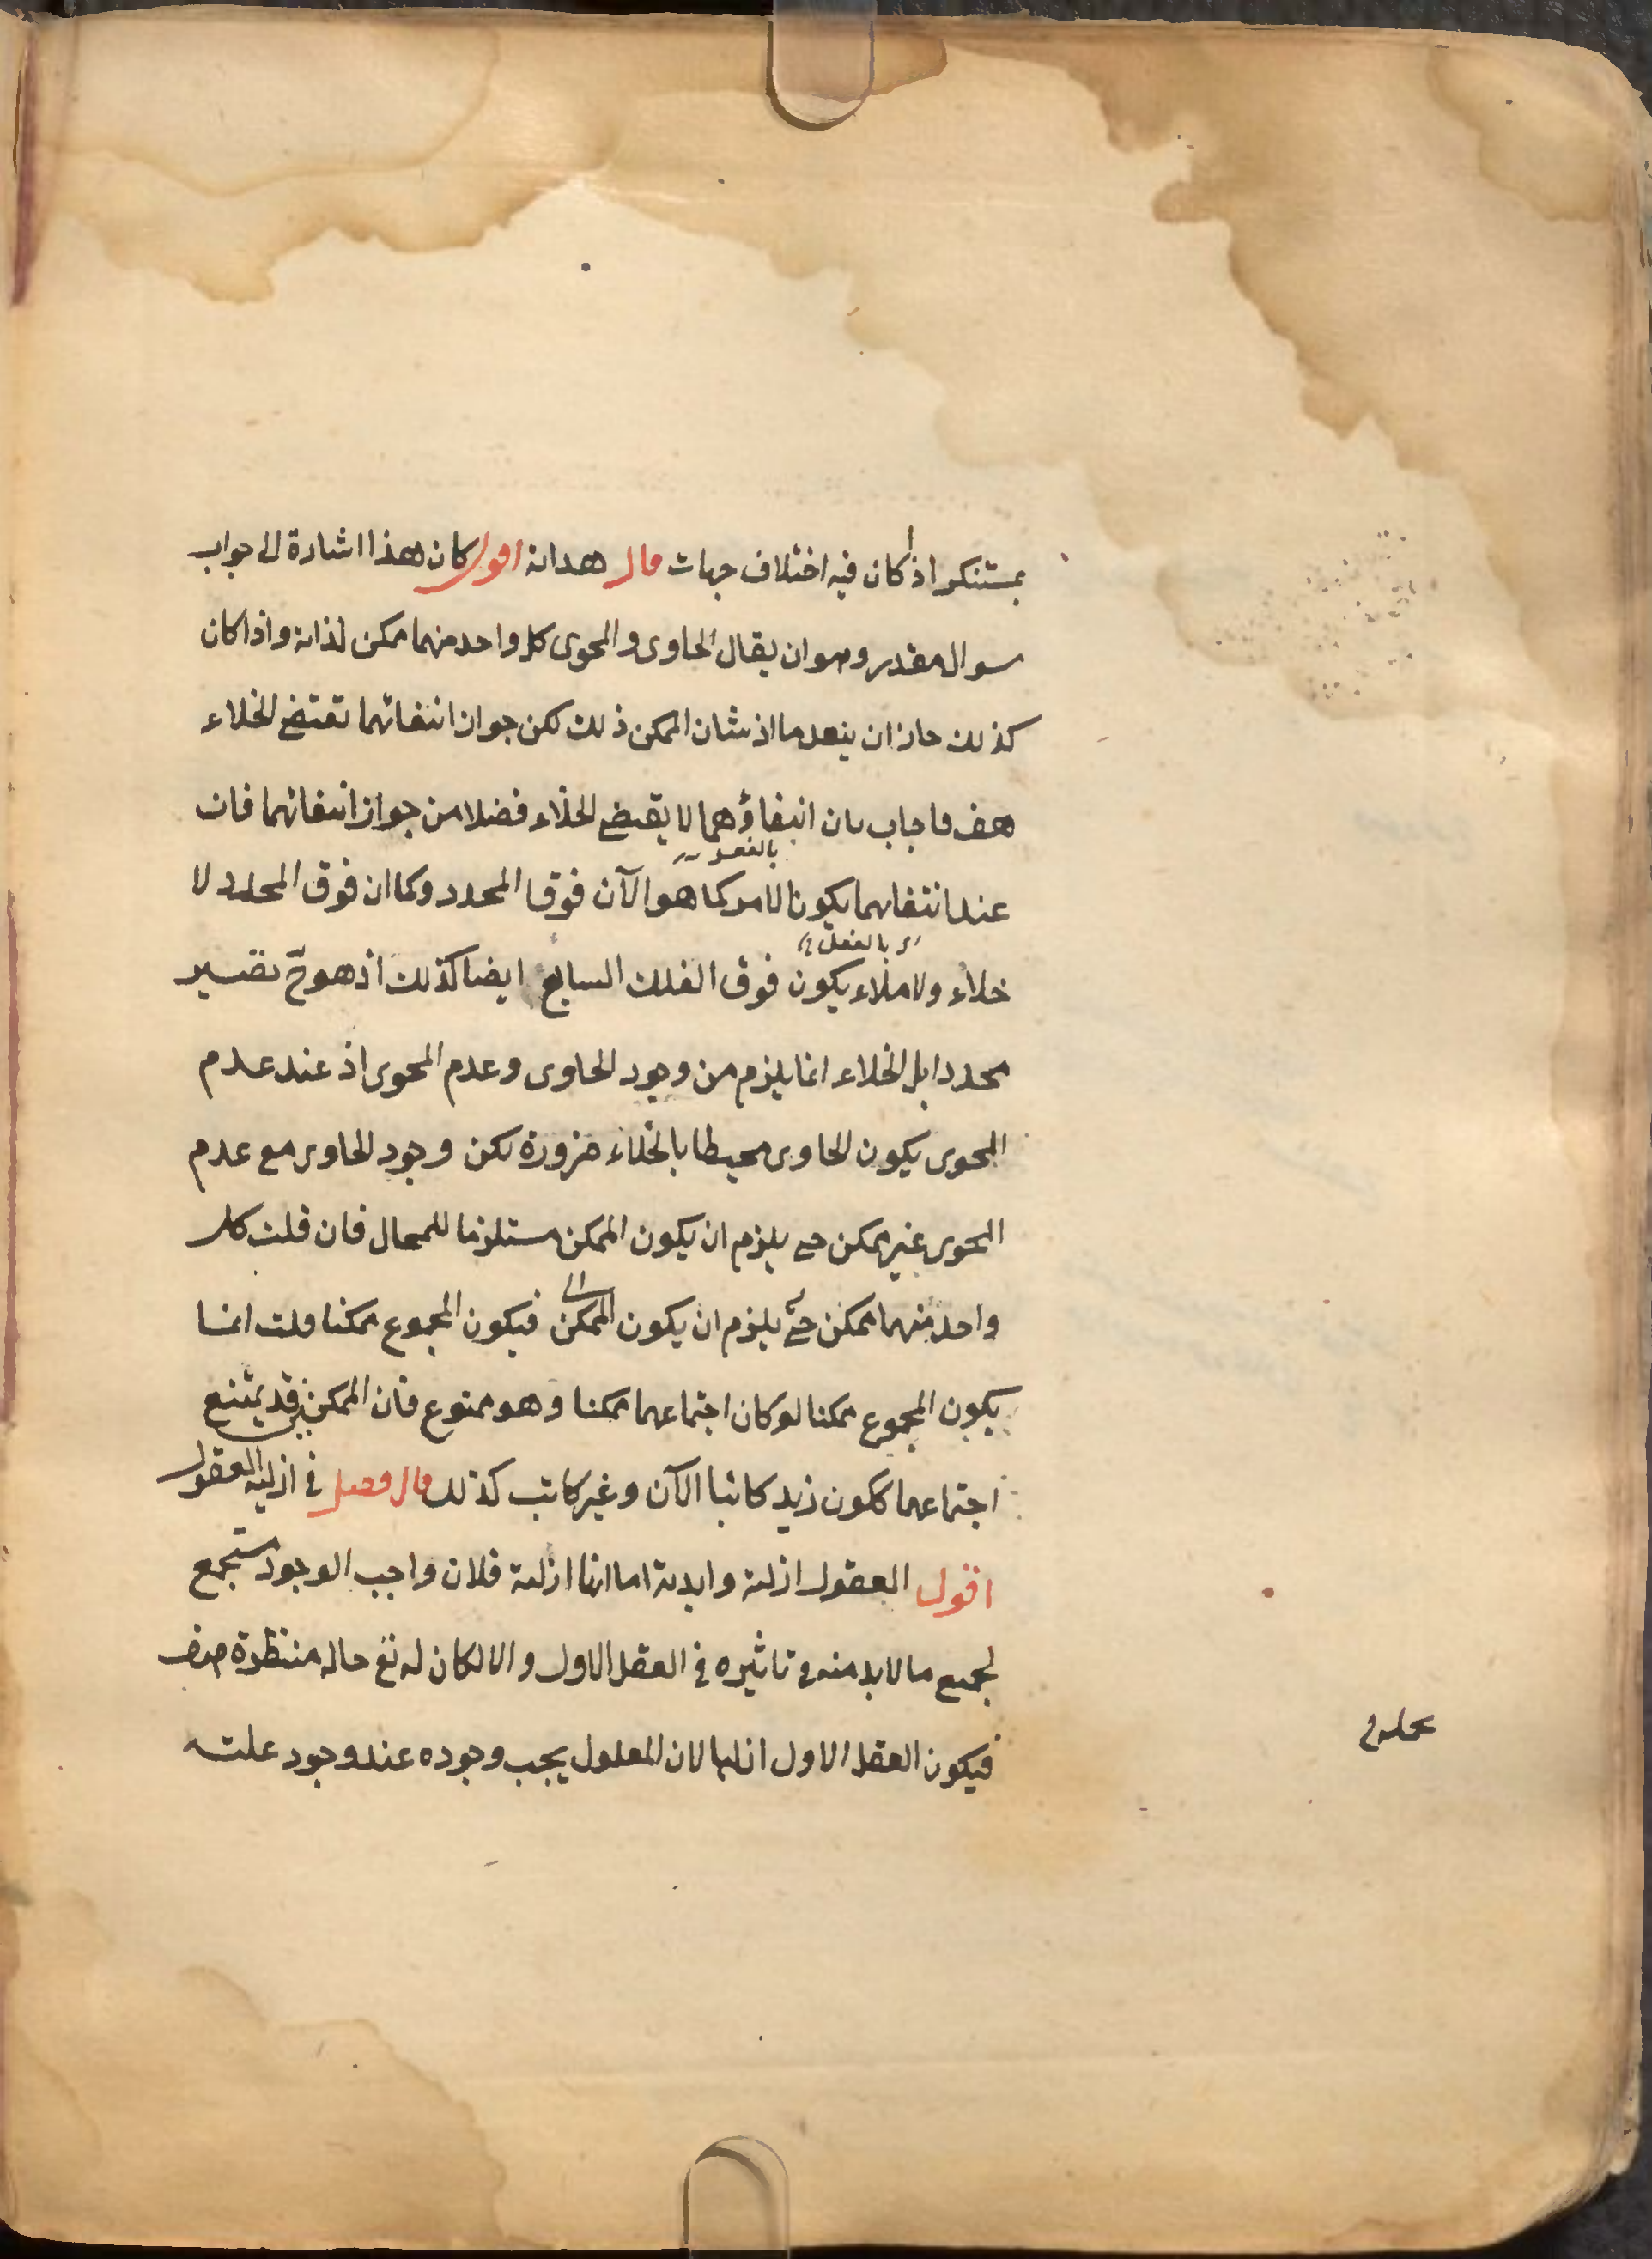 بمستنكر اذا كان فيه اختلاف جهات قال هداية اقول كان هذا اشارة الى جواب
سوال مقدر وهو ان يقال الحاوى والمحوى كل واحد منهما ممكن لذاته واذا كان
كذلك جاز ان ينعدما اذ شان الممكن ذلك لكن جواز انتفائهما تقتضى الخلاء
هف فاجاب بان انتفاؤهما لا يقتضى الخلاء فضلا من جواز انتفائهما فان
عند انتفائهما يكون الامر كما هو الآن فوق المحدد وكما ان فوق المحدد لا
بالفعل
خلاء ولا ملاء يكون فوق الفلك السابع ايضا كذلك اذ هو ح تصير
بالفعل
محددا بل الخلاء انما يلزم من وجود الحاوى وعدم المحوى اذ عند عدم
المحوى يكون الحاوى محيطا بالخلاء ضرورة لكن وجود الحاوى مع عدم
المحوى غير ممكن حتى يلزم ان يكون الممكن مستلزما للمحال فان قلت كل
واحد منهما ممكن حتى يلزم ان يكون الممكن فيكون المجموع ممكنا قلت انما
الى
يكون المجموع ممكنا لو كان اجتماعهما ممكنا وهو ممنوع فان الممكنين قد يمتنع
اجتماعهما ككون زيد كاتبا الآن وغير كاتب كذلك قال فصل في ازلية العقول
اقول العقول ازلية وابدية اما انها ازلية فلان واجب الوجود مستجمع
لجميع ما لابد منه في تاثيره في العقل الاول والا لكان له تع حالة منتظرة هف
فيكون العقل الاول ازليا لان المعلول يجب وجوده عند وجود علته